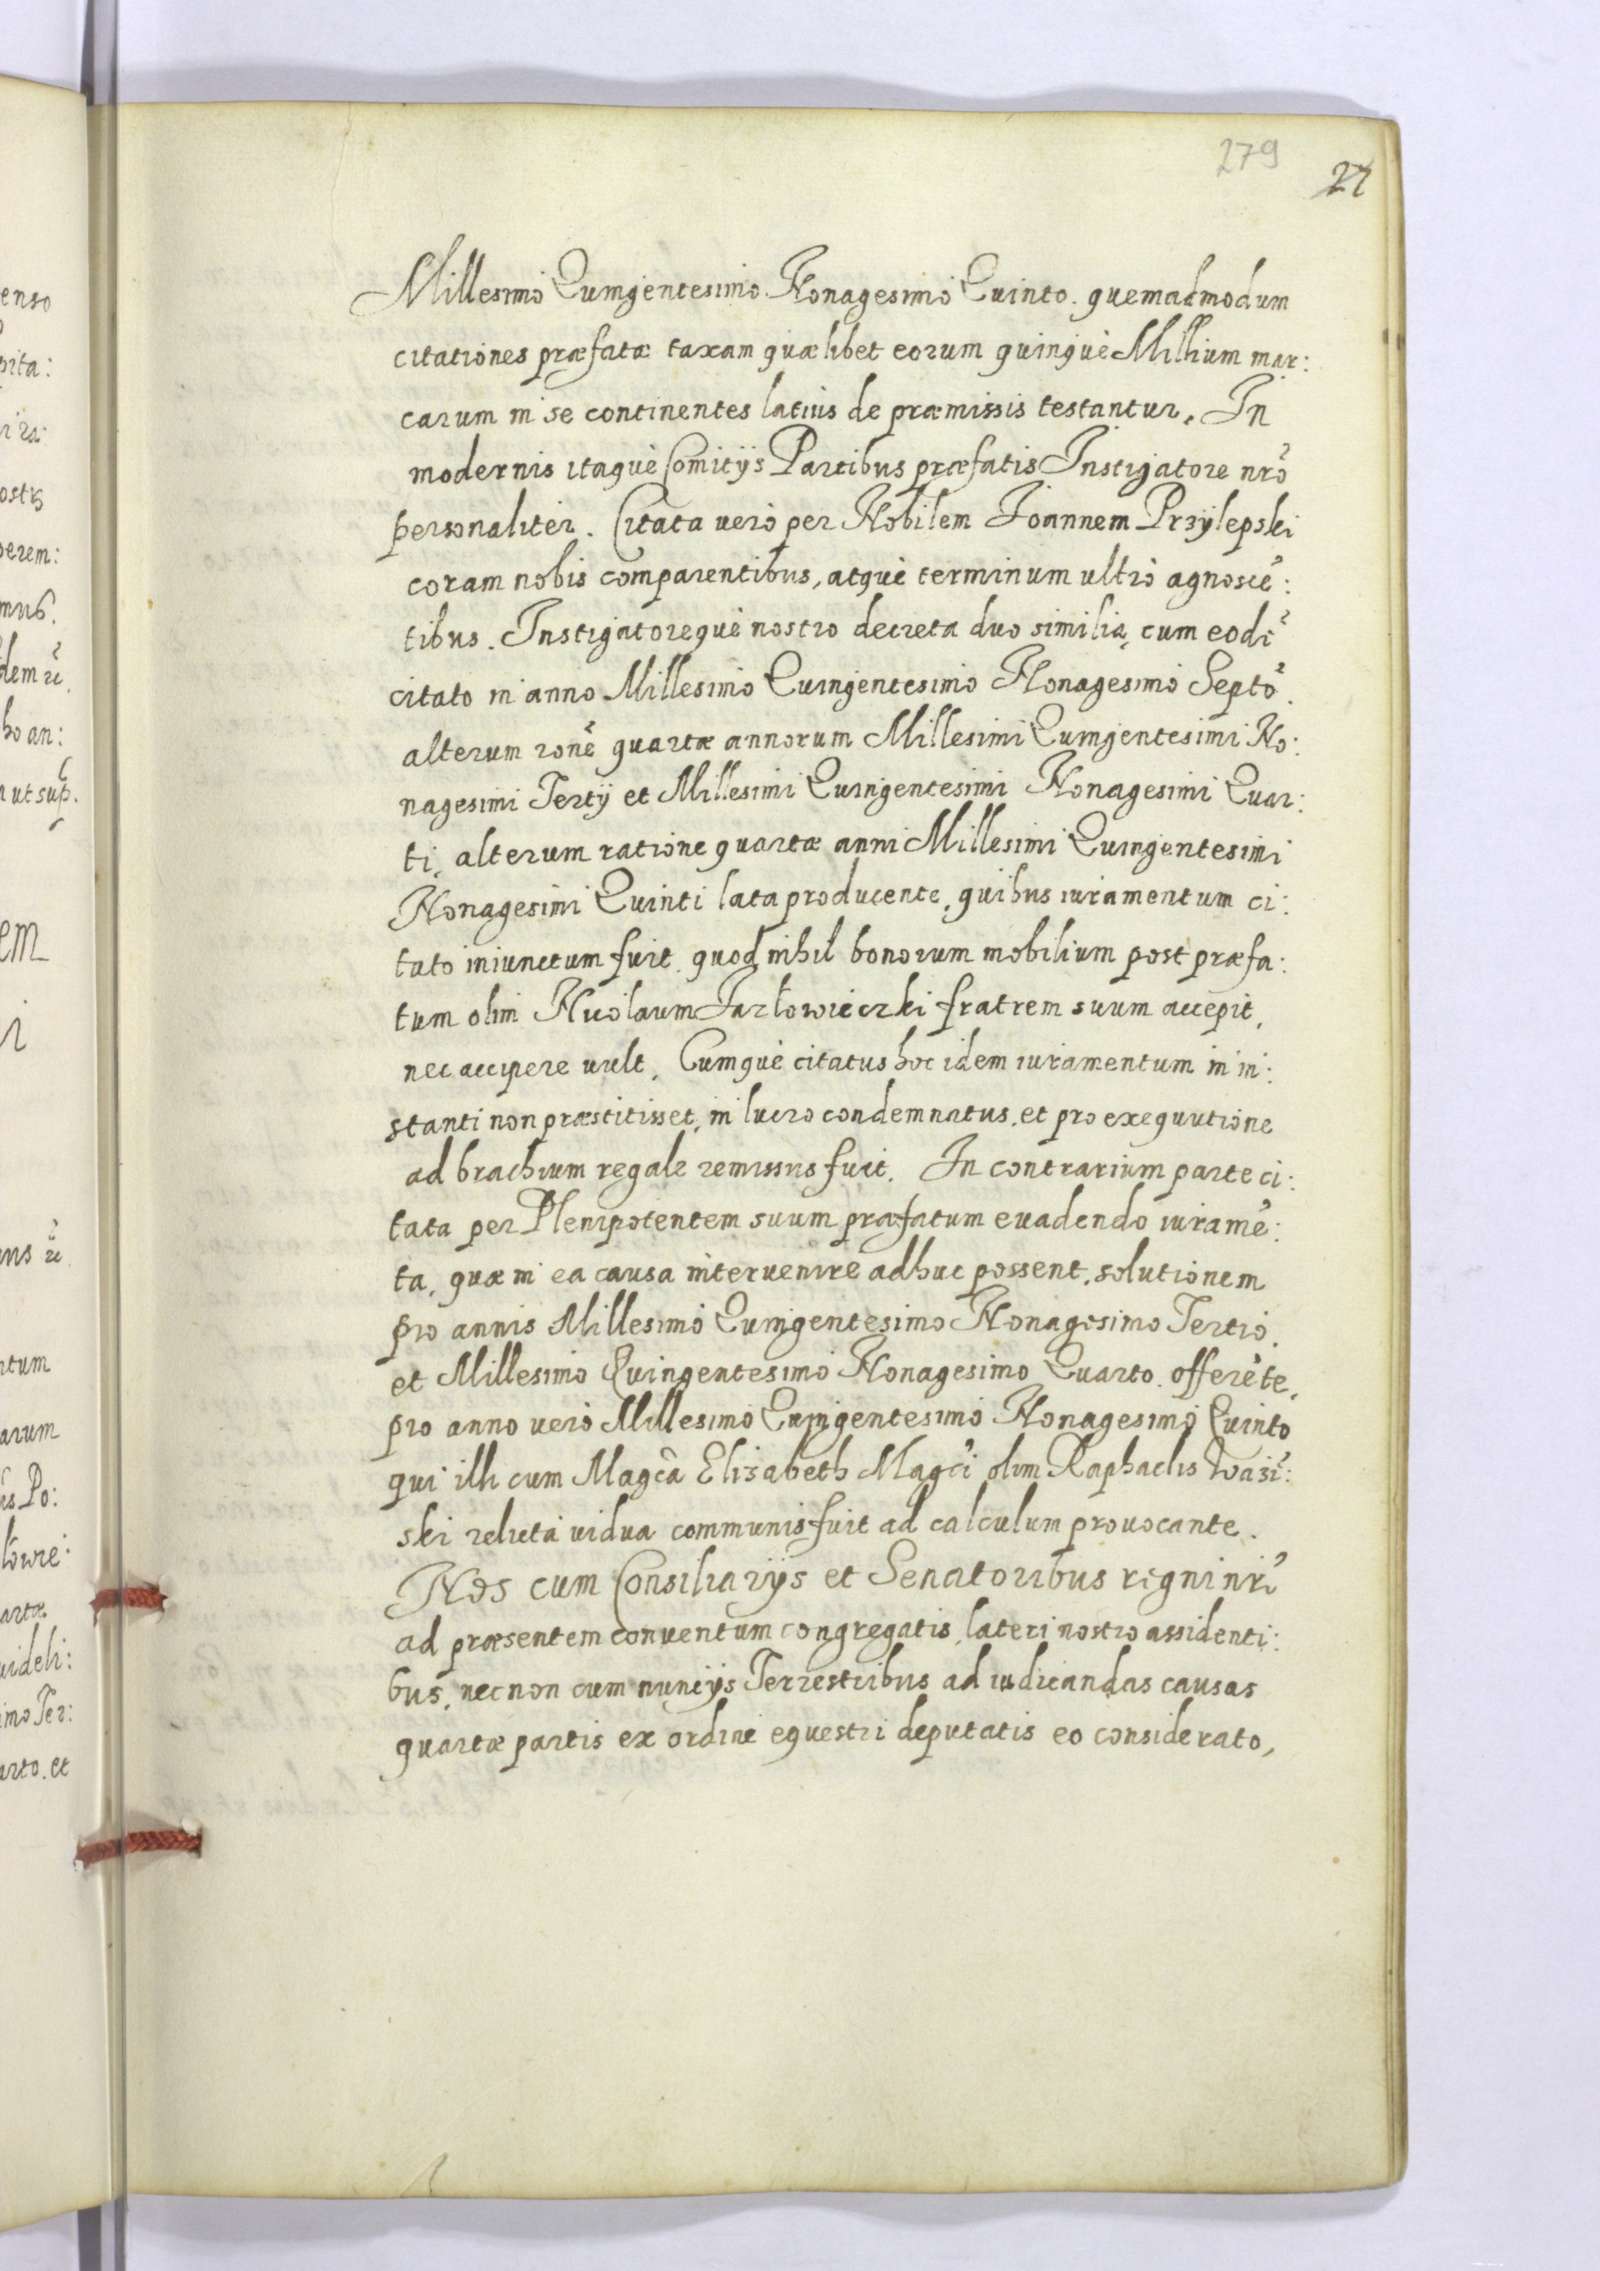 279
27
Millesimo Quingentesimo Nonagesimo Quinto. quemadmodum
citationes præfatæ taxam quælibet eorum quinque Millium mar:
carum in se continentes latius de præmissis testantur. In
modernis itaque Comitijs Partibus præfatis Instigatore nrō
personaliter. Citata vero per Nobilem Joannem Przÿlepski
coram nobis comparentibus, atque terminum ultro agnoscē:
tibus. Instigatoreque nostro decreta duo similia, cum eodē
citato in anno Millesimo Quingentesimo Nonagesimo Septō.
alterum ronē quartæ annorum Millesimi Quingentesimi No:
nagesimi Tertij et Millesimi Quingentesimi Nonagesimi Quar:
ti, alterum ratione quartæ anni Millesimi Quingentesimi
Nonagesimi Quinti lata producente, quibus iuramentum ci:
tato iniunctum fuit. quod nihil bonorum mobilium post præfa:
tum olim Nicolaum Jazłowieczki fratrem suum accepit,
nec accipere vult. Cumque citatus hoc idem iuramentum in in:
stanti non præstitisset, in lucro condemnatus, et pro exequutione
ad brachium regale remissus fuit. In contrarium parte ci:
tata per Plenipotentem suum præfatum evadendo iuramē:
ta, quæ in ea causa intervenire adhuc possent, solutionem
pro annis Millesimo Quingentesimo Nonagesimo Tertio.
et Millesimo Quingentesimo Nonagesimo Quarto. offerēte,
pro anno vero Millesimo Quingentesimo Nonagesimo Quinto
qui illi cum Magcā Elisabeth Magci olim Raphaelis
ski relicta vidua communis fuit ad calculum provocante.
Nos cum Consiliarijs et Senatoribus regni nrī
ad præsentem conventum congregatis, lateri nostro assidenti:
bus, nec non cum nuncijs Terrestribus ad iudicandas causas
quartæ partis ex ordine equestri deputatis eo considerato,